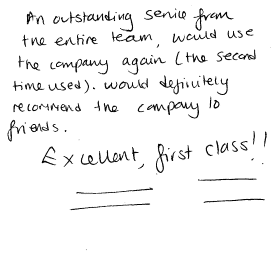 An outstanding service from
the entire team, would use
the company again (the second
time used). would definitely
recommend the company to
friends.
Excellent, first class!!